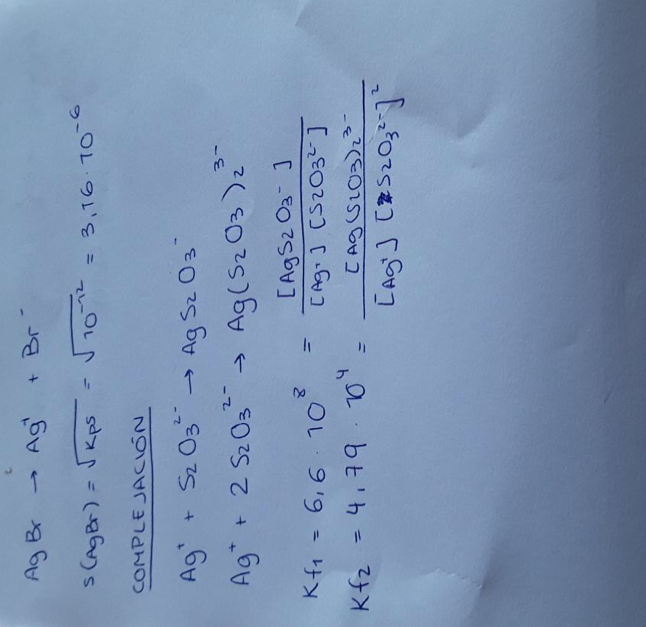 AgBr → Ag⁺ + Br⁻
s(AgBr) = √Kps = √10⁻¹² = 3,16·10⁻⁶
COMPLEJACIÓN
Ag⁺ + S₂O₃²⁻ → AgS₂O₃⁻
Ag⁺ + 2 S₂O₃²⁻ → Ag(S₂O₃)₂³⁻
Kf₁ = 6,6·10⁸ = [AgS₂O₃⁻] / [Ag⁺] [S₂O₃²⁻]
Kf₂ = 4,79·10⁴ = [Ag(S₂O₃)₂³⁻] / [Ag⁺] [S₂O₃²⁻]²